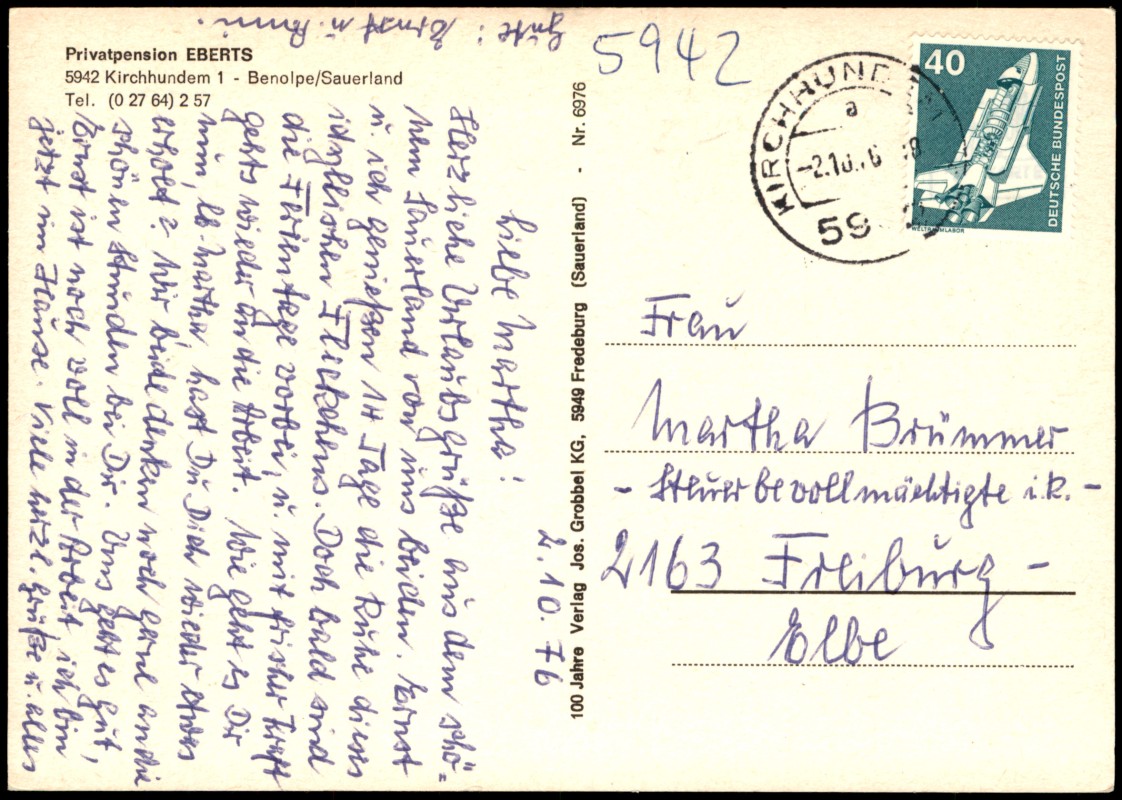 Privatpension EBERTS
5942 Kirchhundem 1 - Benolpe/Sauerland
Tel. (0 27 64) 2 57
2.10.76
Liebe Martha!
Herzliche Urlaubsgrüße aus dem schö-
nen Sauerland von uns beiden. Ernst
u. ich genießen 14 Tage die Ruhe dieses
idyllischen Fleckchens. Doch bald sind
die Ferientage vorbei, u. mit frischer Kraft
gehts wieder an die Arbeit. Wie geht es Dir
nun, lb. Martha, hast Du Dich wieder etwas
erholt? Wir beide denken noch gerne an die
schönen Stunden bei Dir. Uns geht es gut,
Ernst ist noch voll in der Arbeit, ich bin
jetzt im Hause. Viele herzl. Grüße u. alles
Gute: Ernst u.
100 Jahre Verlag Jos. Grobbel KG, 5949 Fredeburg (Sauerland) - Nr. 6976
5942
KIRCHHUNDEM 1
a
-2.10.76-18
59
40
DEUTSCHE BUNDESPOST
WELTRAUMLABOR
Frau
Martha Brümmer
- Steuerbevollmächtigte i.R. -
2163 Freiburg -
Elbe